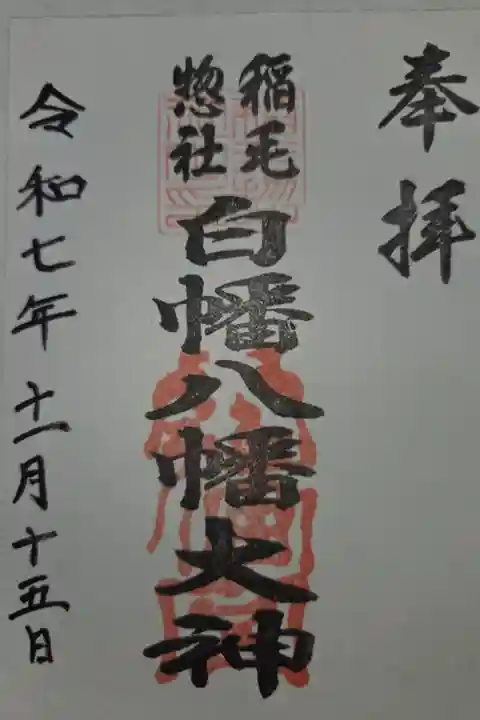 奉拝
稲毛
惣社
白幡八幡大神
令和七年十一月十五日